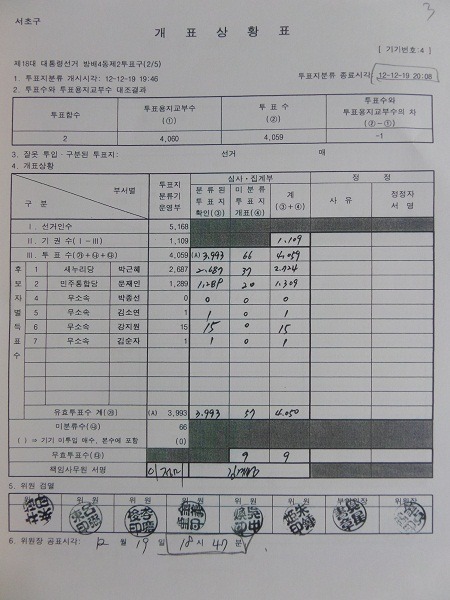 3
서초구
개 표 상 황 표
[ 기기번호:4 ]
제18대 대통령선거 방배4동제2투표구(2/5)
1. 투표지분류 개시시각: 12-12-19 19:46 투표지분류 종료시각: 12-12-19 20:08
2. 투표수와 투표용지교부수 대조결과
투표함수 투표용지교부수 (①) 투 표 수 (②) 투표수와 투표용지교부수의 차 (②-①)
2 4,060 4,059 -1
3. 잘못 투입·구분된 투표지: 선거 매
4. 개표상황
구 분 부서별 투표지 분류기 운영부 심사·집계부 정 정
분 류 된 투 표 지 확인(③) 미 분 류 투 표 지 개표(④) 계 (③+④) 사 유 정정자 서 명
Ⅰ. 선거인수 5,168
Ⅱ. 기 권 수(Ⅰ-Ⅲ) 1,109 1,109
Ⅲ. 투 표 수 4,059 (A) 3,993 66 4,059
후보자별득표수
1 새누리당 박근혜 2,687 2,687 37 2,724
2 민주통합당 문재인 1,289 1,289 20 1,309
4 무소속 박종선 0 0 0 0
5 무소속 김소연 1 1 0 1
6 무소속 강지원 15 15 0 15
7 무소속 김순자 1 1 0 1
유효투표수 계 (A) 3,993 3,993 57 4,050
미분류수 66
( ) ⇒ 기기 미투입 매수, 본수에 포함 (0)
무효투표수 9 9
책임사무원 서명
5. 위원 검열
위 원 위 원 위 원 위 원 위 원 위 원 부위원장 위원장
6. 위원장 공표시각: 12 월 19 일 18 시 47 분